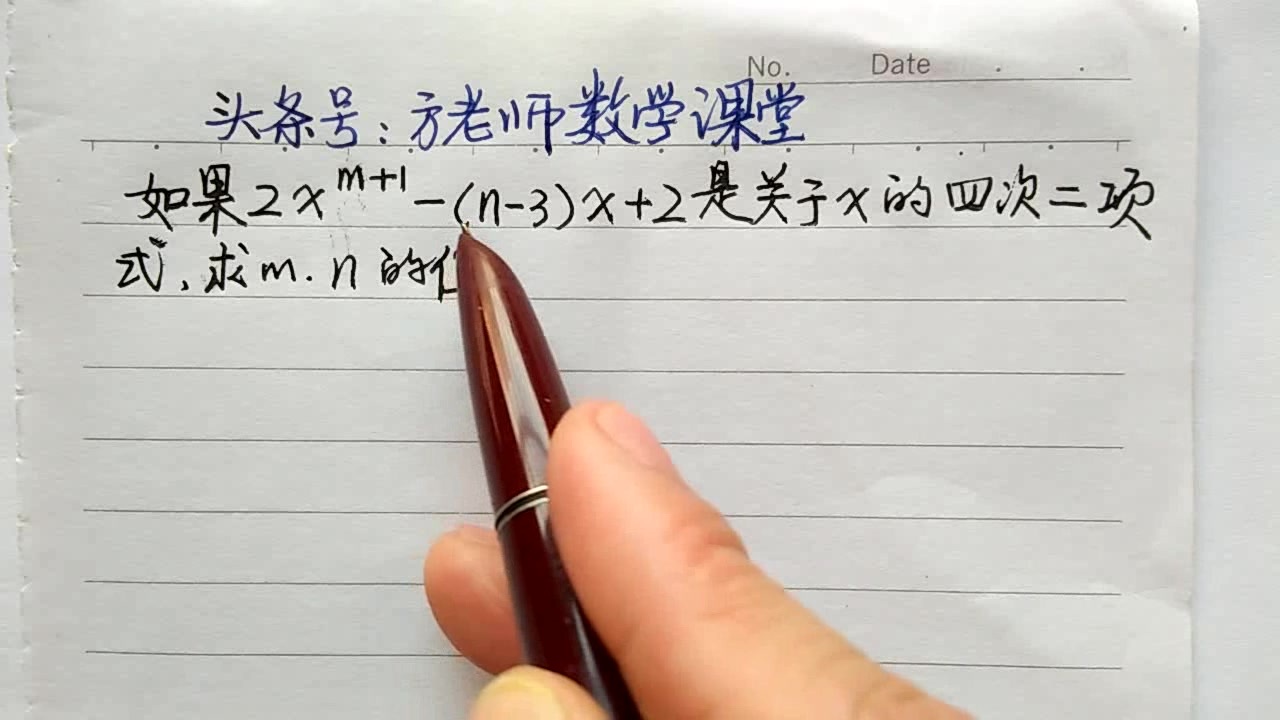 No. Date
头条号:方老师数学课堂
如果2x^{m+1}-(n-3)x+2是关于x的四次二项
式,求m.n的